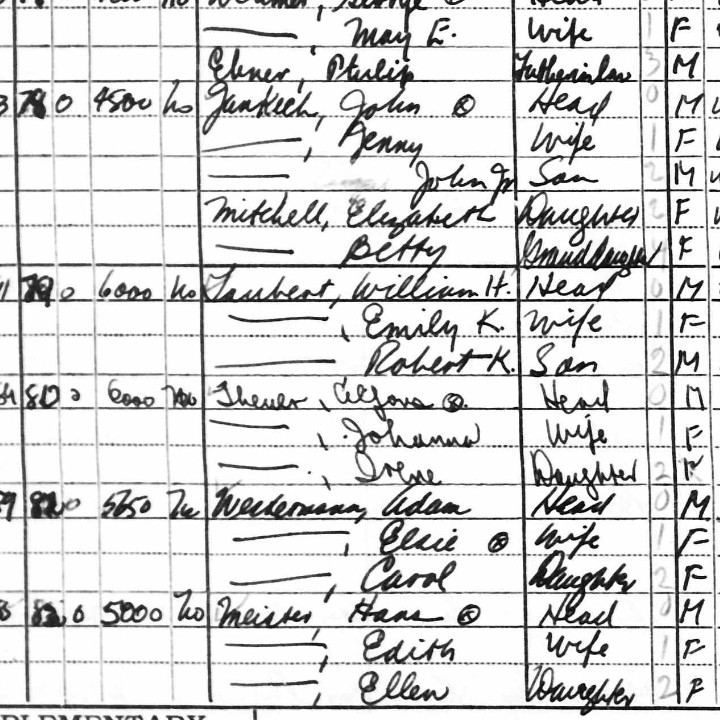 George Head
—— May E. Wife 1 F
Ebner, Philip Fatherinlaw 3 M
78 0 4500 No John ⊗ Head 0 M
——, Jenny Wife 1 F
—— John Jr Son 2 M
Mitchell, Elizabeth Daughter 2 F
—— Betty GrandDaughter F
79 0 6000 No Taubert, William H. Head 0 M
——, Emily K. Wife 1 F
—— Robert K. Son 2 M
80 0 6000 No ⊗ Head 0 M
——, Johanna Wife 1 F
——, Irene Daughter 2 F
0 5650 No Weidermann, Adam Head 0 M
——, Elsie ⊗ Wife 1 F
——, Carol Daughter 2 F
0 5000 No Meister, Hans ⊗ Head 0 M
——, Edith Wife 1 F
——, Ellen Daughter 2 F